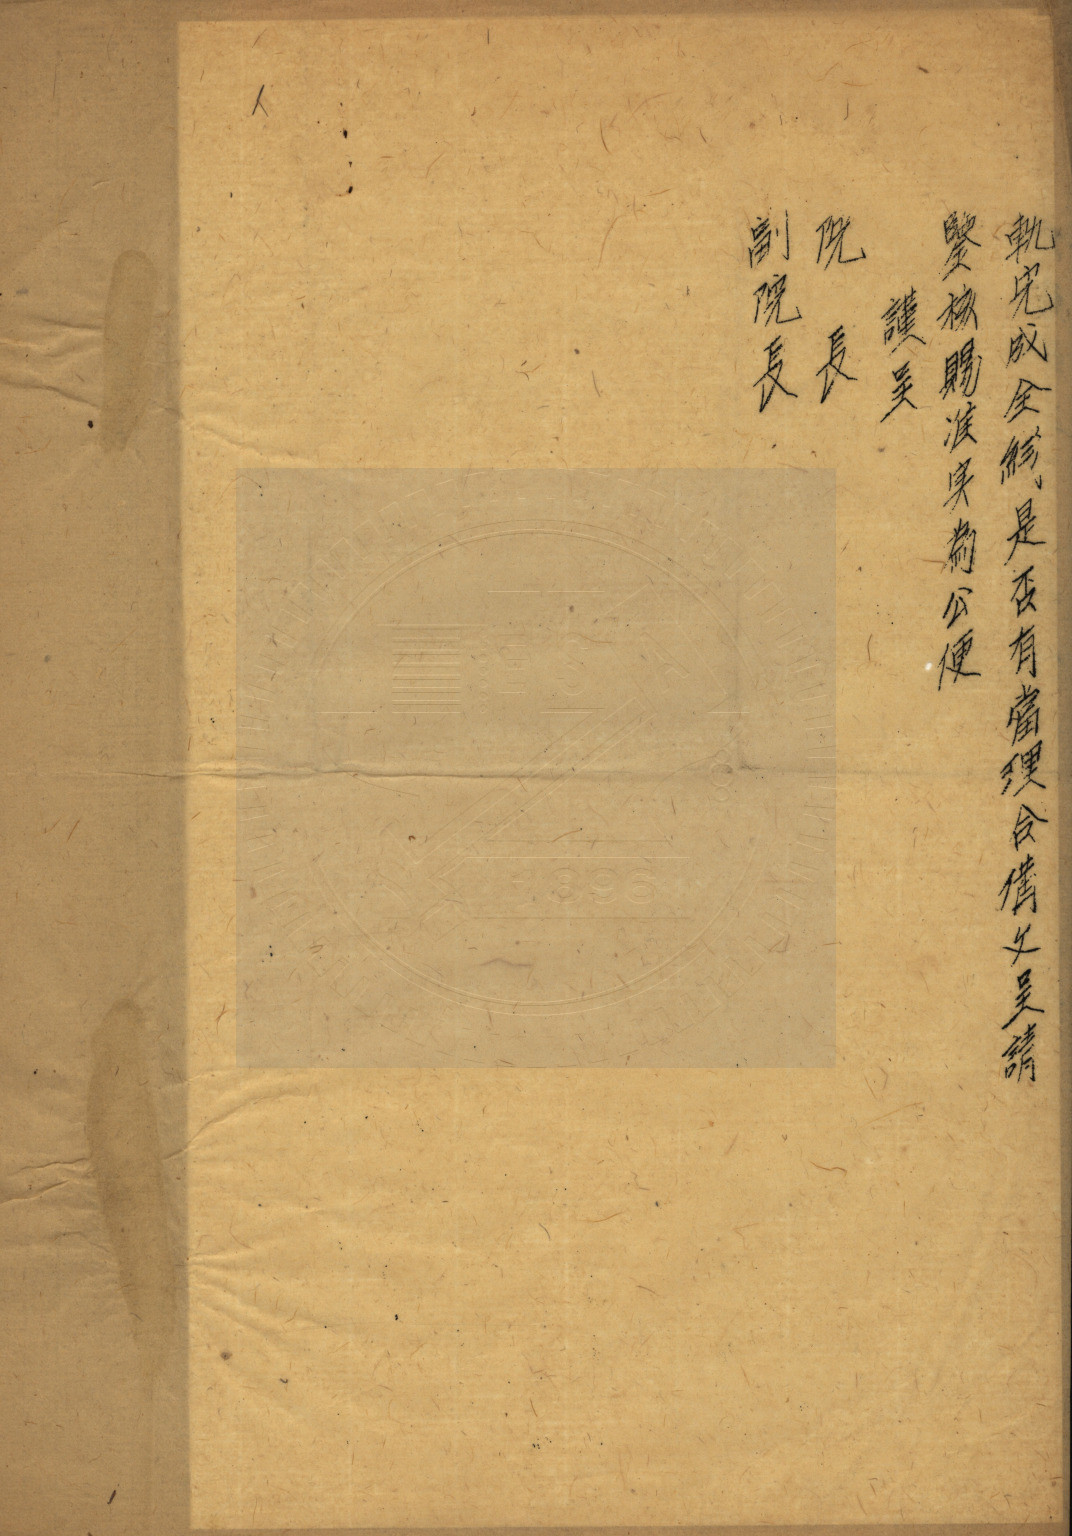 軌完成全線是否有當理合備文呈請
鑒核賜准实為公便
謹呈
院 長
副院長
1896